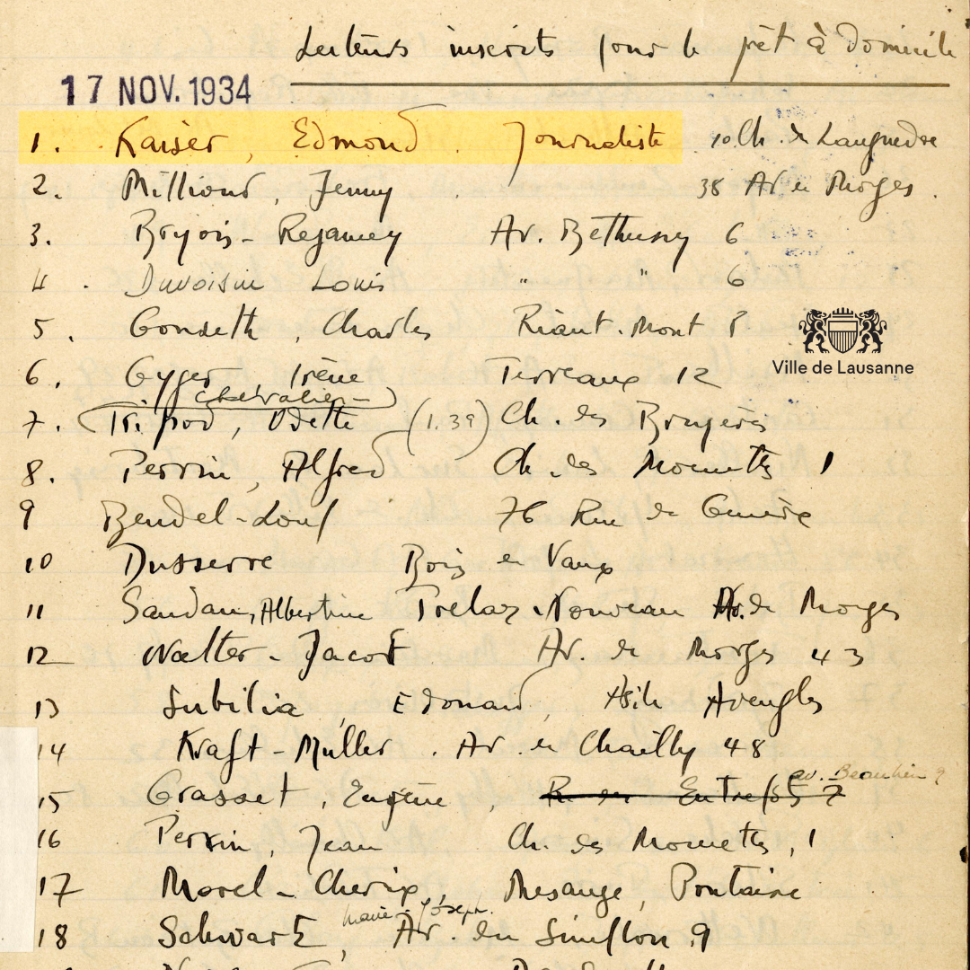 Lecteurs inscrits pour le prêt à domicile
17 NOV. 1934
1. Kaiser, Edmond. Journaliste 10 Ch. de Languedoc
2. Millioud, Jenny 38 Av. de Morges.
3. Bryois-Regamey Av. Bethusy 6
4. Duvoisin Louis " " 6
5. Gonseth, Charles Riant-Mont 8
Ville de Lausanne
6. Gyger Irène Terreaux 12
(Chevalier)
7. Tripod, Odette (1.39) Ch. des Bruyères
8. Perrin, Alfred Ch. des Mouettes 1
9 Bendel- 76 Rue de Genève
10 Dusserre Bois de Vaux
11 Saudan, Albertine Nouveau Av. de Morges
12 Walter-Jacot Av. de Morges 43
13 Subilia, Edouard, Asile Aveugles
14 Kraft-Muller. Av. de Chailly 48
av. Beaulieu 9
15 Grasset, Eugène, R. des Entrepôts 7
16 Perrin, Jean Ch. des Mouettes, 1
17 Morel-Cherix, Mesange, Pontaise
Marie-Joseph
18 Schwartz Av. du Simplon 9